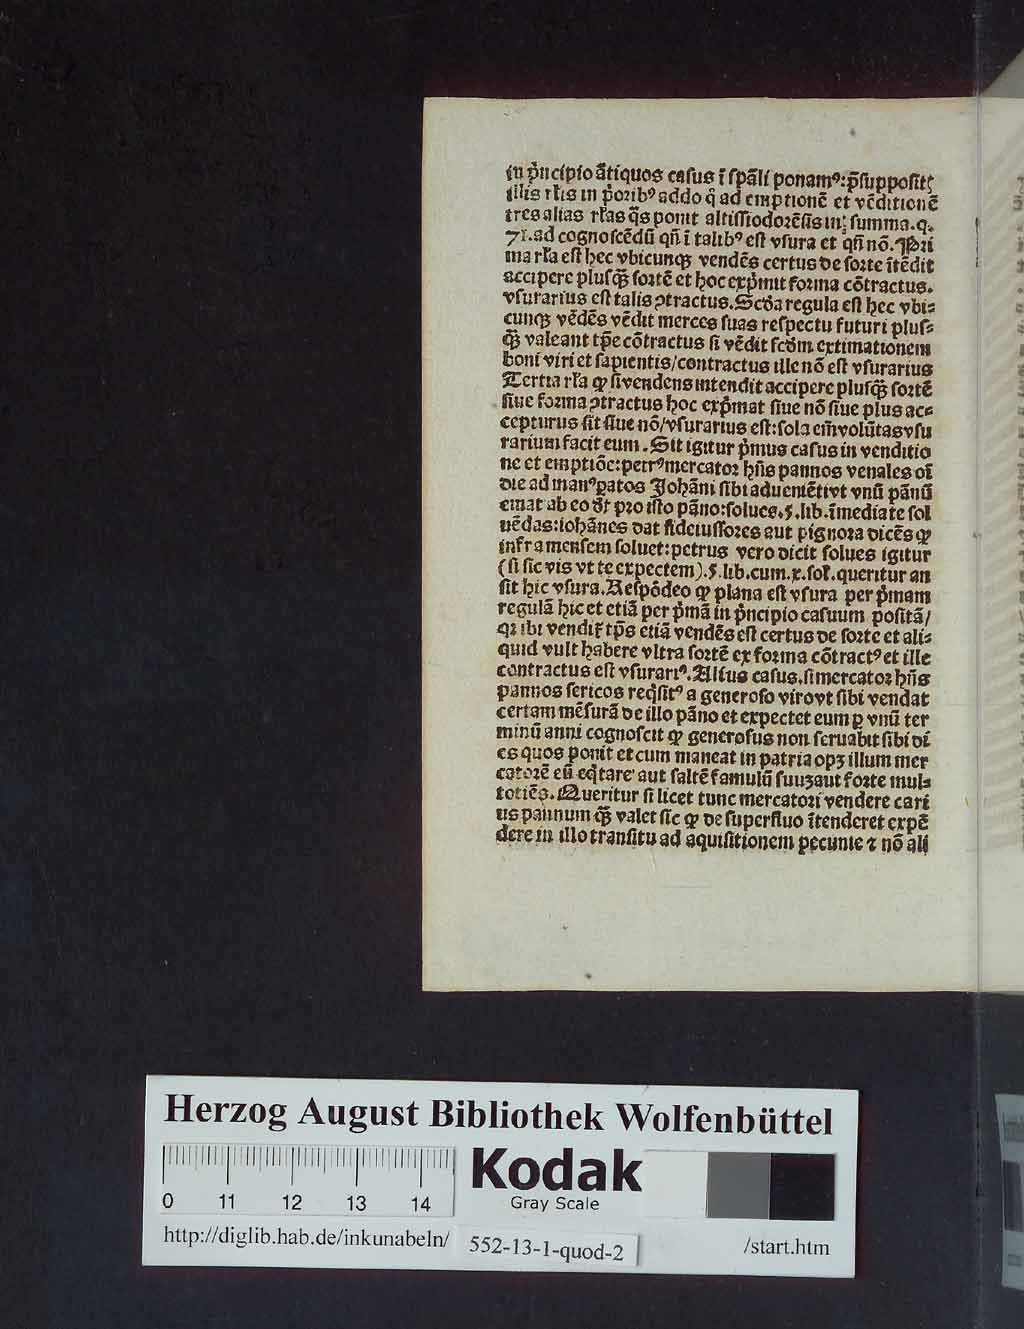 in p̄ncipio ātiquos casus ī spāli ponamꝰ: p̄suppositꝭ
illis rl̄is in p̄oribꝰ addo q̄ ad emptionē et vēditionē
tres alias rl̄as q̄s ponit altissiodorēsis in summa. q.
71. ad cognoscēdū qn̄ ī talibꝰ est vsura et qn̄ nō. Pri
ma rl̄a est hec vbicunqꝫ vendēs certus de sorte ītēdit
accipere plusqꝫ̄ sortē et hoc exp̄mit forma cōtractus.
vsurarius est talis ꝯtractus. Scd̄a regula est hec vbi⸗
cunqꝫ vēdēs vēdit merces suas respectu futuri plus⸗
qꝫ̄ valeant tp̄e cōtractus si vēdit scd̄m extimationem
boni viri et sapientis/contractus ille nō est vsurarius
Tertia rl̄a ꝙ si vendens intendit accipere plusqꝫ̄ sortē
siue forma ꝯtractus hoc exp̄mat siue nō siue plus ac⸗
cepturus sit siue nō/vsurarius est: sola em̄ volūtas vsu
rarium facit eum. Sit igitur p̄mus casus in venditio
ne et emptiōe: petrꝰ mercator hn̄s pannos venales oī
die ad manꝰ ꝑatos Johāni sibi aduenīēti vt vnū pānū
emat ab eo dr̄ pro isto pāno: solues. 5. lib. īmediate sol
uēdas: iohānes dat fideiussores aut pignora dicēs ꝙ
infra mensem soluet: petrus vero dicit solues igitur
(si sic vis vt te expectem). 5. lib. cum. x. sol̄. queritur an
sit hic vsura. Respōdeo ꝙ plana est vsura per p̄mam
regulā hic et etiā per p̄mā in p̄ncipio casuum positā/
qꝛ ibi vendit̄ tp̄s etiā vendēs est certus de sorte et ali⸗
quid vult habere vltra sortē ex forma cōtractꝰ et ille
contractus est vsurariꝰ. Alius casus. si mercator hn̄s
pannos sericos req̄sitꝰ a generoso viro vt sibi vendat
certam mēsurā de illo pāno et expectet eum ꝑ vnū ter
minū anni cognoscit ꝙ generosus non seruabit sibi di
es quos ponit et cum maneat in patria opꝫ illum mer
catorē eū eq̄tare aut saltē famulū suuꝫ aut forte mul⸗
totiēs. Queritur si licet tunc mercatori vendere cari
us pannum qꝫ̄ valet sic ꝙ de superfluo ītenderet expē
dere in illo transitu ad aquisitionem pecunie ⁊ nō ali
Herzog August Bibliothek Wolfenbüttel
0 11 12 13 14
Kodak
Gray Scale
http://diglib.hab.de/inkunabeln/ 552-13-1-quod-2 /start.htm